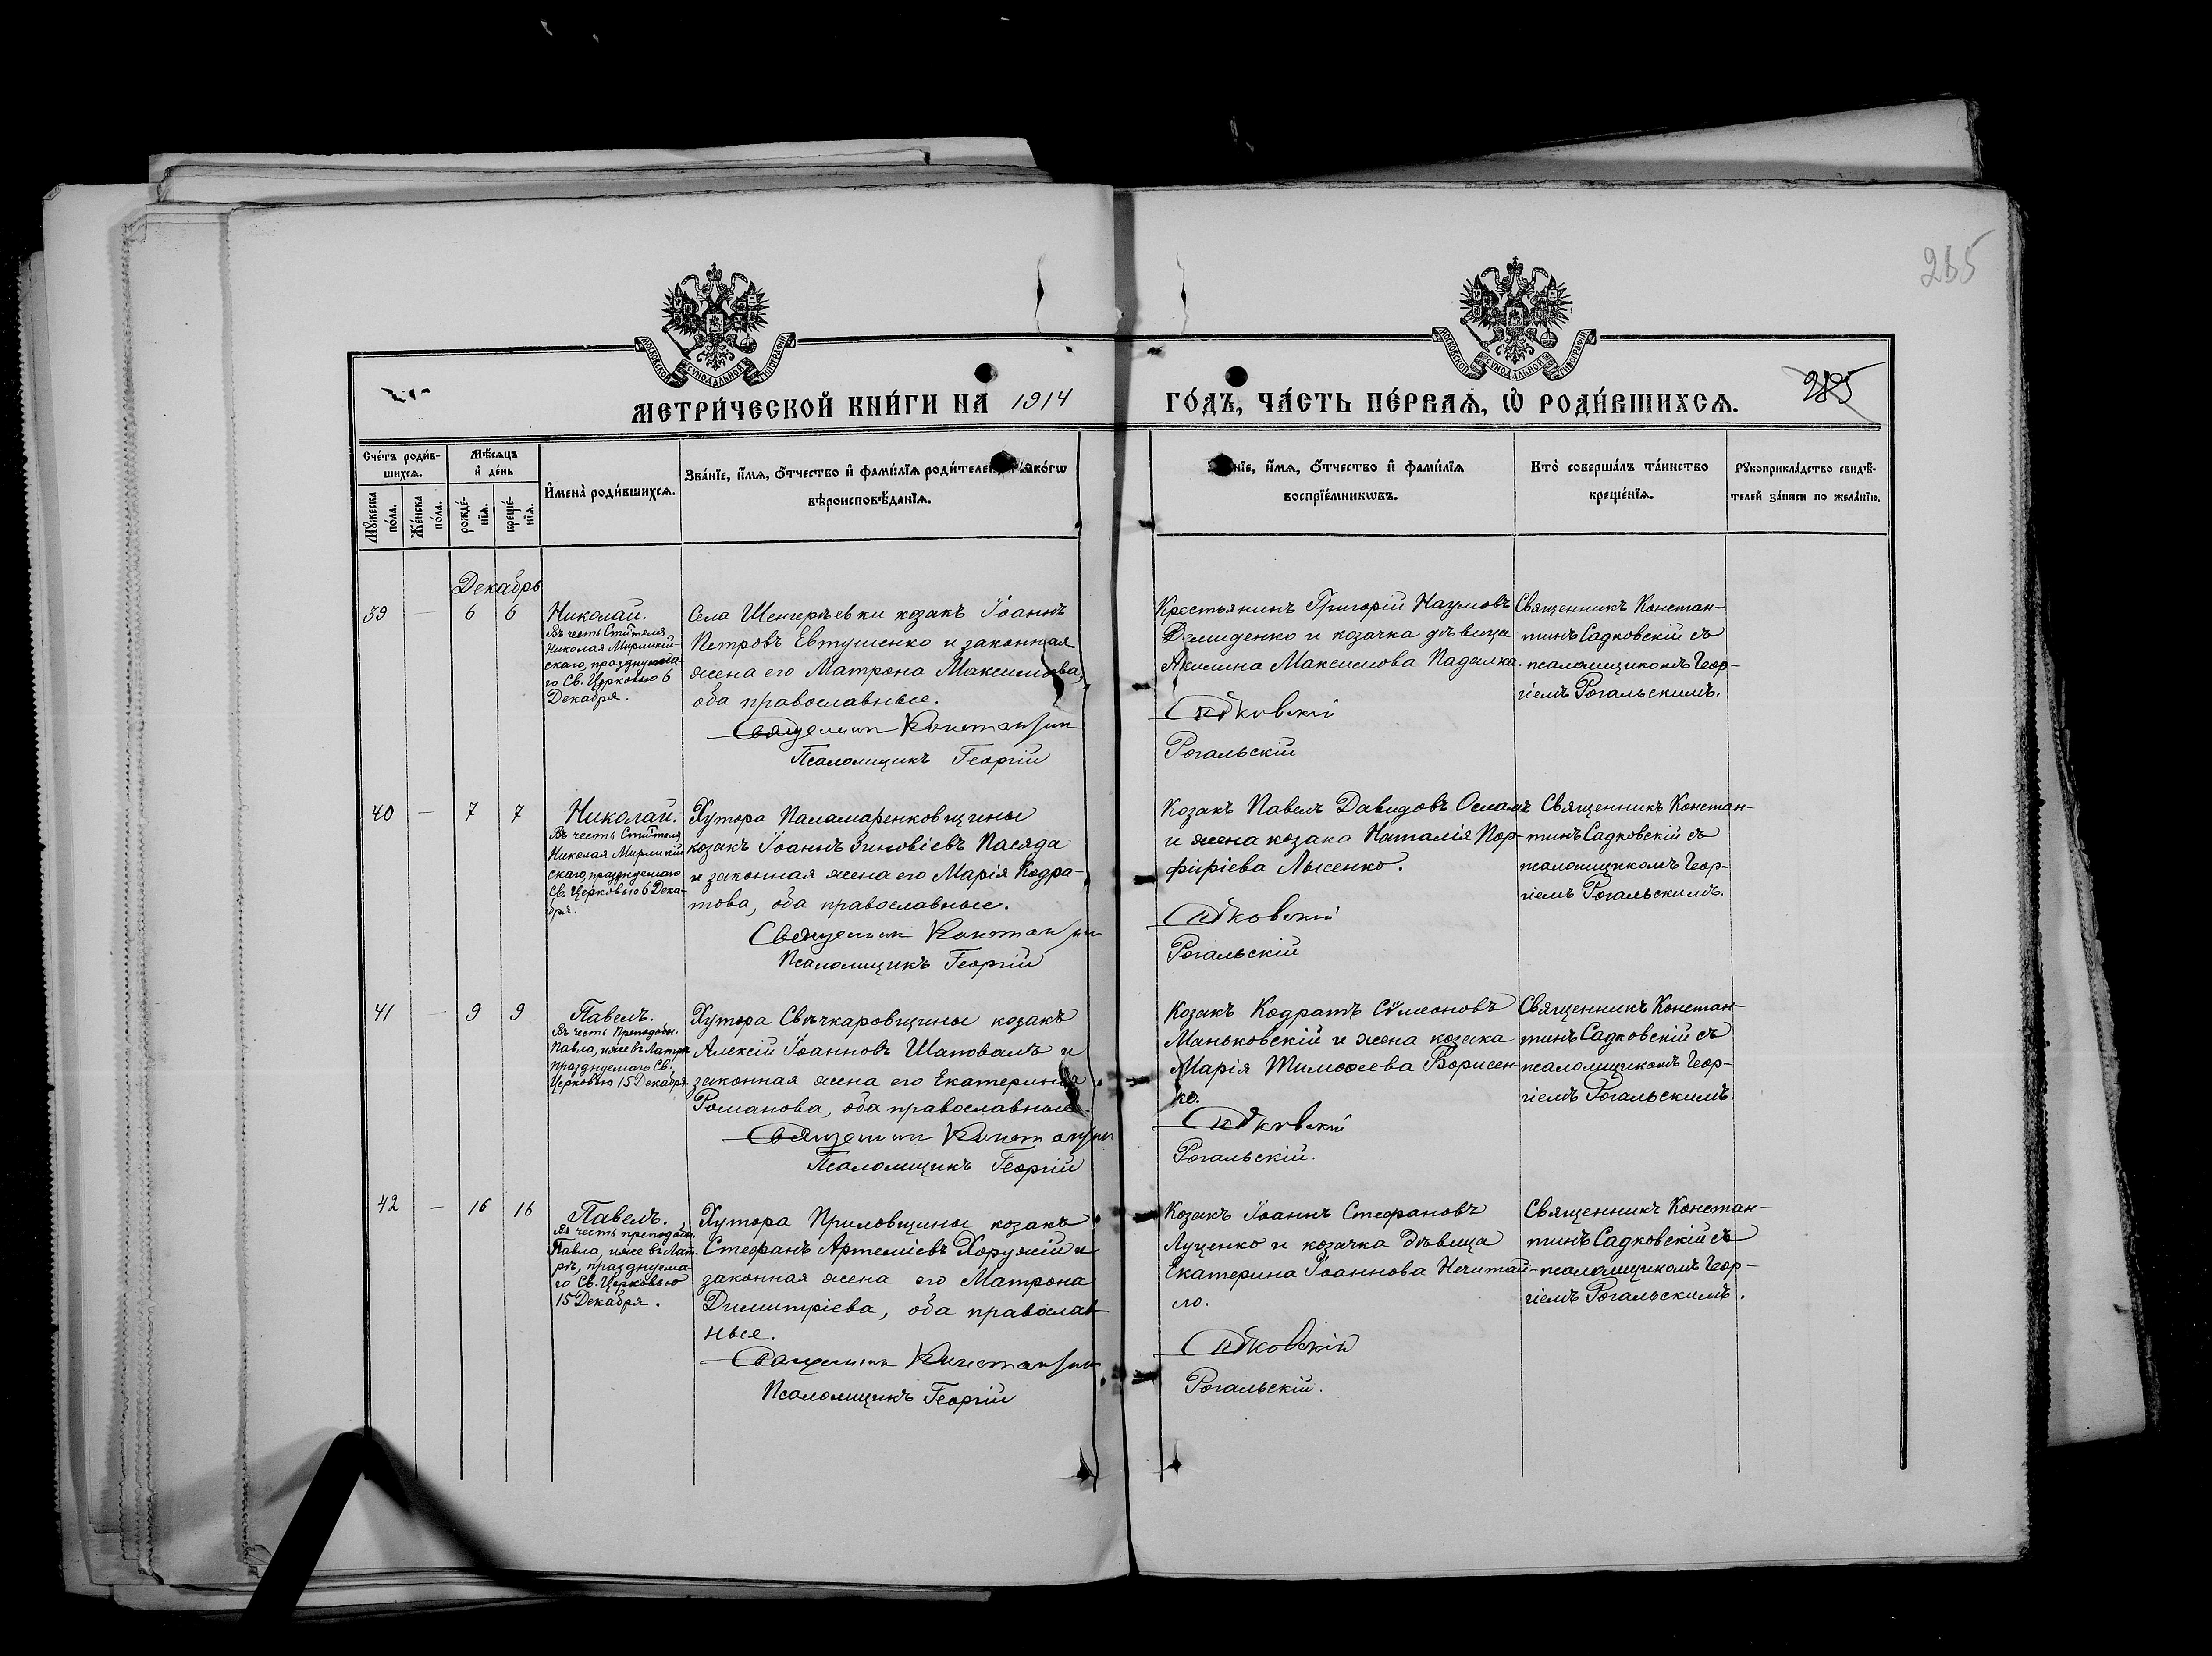 265
МОСКОВСКОЙ СѴНОДАЛЬНОЙ ТИПОГРАФІИ
МОСКОВСКОЙ СѴНОДАЛЬНОЙ ТИПОГРАФІИ
МЕТРИ́ЧЕСКОЙ КНИ́ГИ НА 1914
ГО́ДЪ, ЧА́СТЬ ПЕ́РВАѦ, Ѽ РОДИ́ВШИХСѦ.
285
Сче́тъ роди́в-
шихсѧ.
Мꙋ́жеска
по́ла.
Же́нска
по́ла.
Мѣ́сѧцъ
и҆ де́нь
рожде́-
нїѧ.
креще́-
нїѧ.
И҆мена̀ роди́вшихсѧ.
Зва́нїе, и҆́мѧ, ѻ҆́тчество и҆ фами́лїѧ роди́телей
вѣроисповѣ́данїѧ.
и҆́мѧ, ѻ҆́тчество и҆ фами́лїѧ
воспрїе́мникѡвъ.
Кто̀ соверша́лъ та́инство
креще́нїѧ.
Рꙋкоприкла́дство свидѣ́-
телей за́писи по жела́нїю.
Декабрь
39 — 6 6
Николай.
Въ честь Стителя
Николая Мирликій-
скаго, празднуема-
го Св. Церковью 6
Декабря.
Села Шенгерѣевки козакъ Іоаннъ
Петровъ Евтушенко и законная
жена его Матрона Максимова,
оба православные.
Священник Константин
Псаломщикъ Георгій
Крестьянинъ Григорій Наумовъ
Демиденко и козачка дѣвица
Акилина Максимова Падалка.
Садковскій
Рогальскій
Священникъ Констан-
тинъ Садковскій съ
псаломщикомъ Геор-
гіемъ Рогальскимъ.
40 — 7 7
Николай.
Въ честь Стителя
Николая Мирликій
скаго, празднуемаго
Св. Церковью 6 Дека-
бря.
Хутора Паламаренковщины
козакъ Іоаннъ Зиновіевъ Пасяда
и законная жена его Марія Кодра-
това, оба православные.
Священник Константин
Псаломщикъ Георгій
Козакъ Павелъ Давидовъ Осламъ
и жена козака Наталія Пор-
фиріева Лысенко.
Садковскій
Рогальскій
Священникъ Констан-
тинъ Садковскій съ
псаломщикомъ Геор-
гіемъ Рогальскимъ.
41 — 9 9
Павелъ.
Въ честь Преподобн.
Павла, иже въ Латрѣ
празднуемаго Св.
Церковью 15 Декабря.
Хутора Свѣчкаровщины козакъ
Алексій Іоанновъ Шаповалъ и
законная жена его Екатерина
Романова, оба православные.
Священник Константин
Псаломщикъ Георгій
Козакъ Кодратъ Сѵмеоновъ
Маньковскій и жена козака
Марія Тимоѳеева Борисен-
ко.
Садковскій
Рогальскій.
Священникъ Констан-
тинъ Садковскій съ
псаломщикомъ Геор-
гіемъ Рогальскимъ.
42 — 16 16
Павелъ.
Въ честь преподобн.
Павла, иже въ Лат-
рѣ, празднуема-
го Св. Церковью
15 Декабря.
Хутора Приловщины козакъ
Стефанъ Артеміевъ Хоружій и
законная жена его Матрона
Димитріева, оба православ-
ные.
Священник Константин
Псаломщикъ Георгій
Козакъ Іоаннъ Стефановъ
Луценко и козачка дѣвица
Екатерина Іоаннова Нечитай-
ло.
Садковскій
Рогальскій.
Священникъ Констан-
тинъ Садковскій съ
псаломщикомъ Геор-
гіемъ Рогальскимъ.